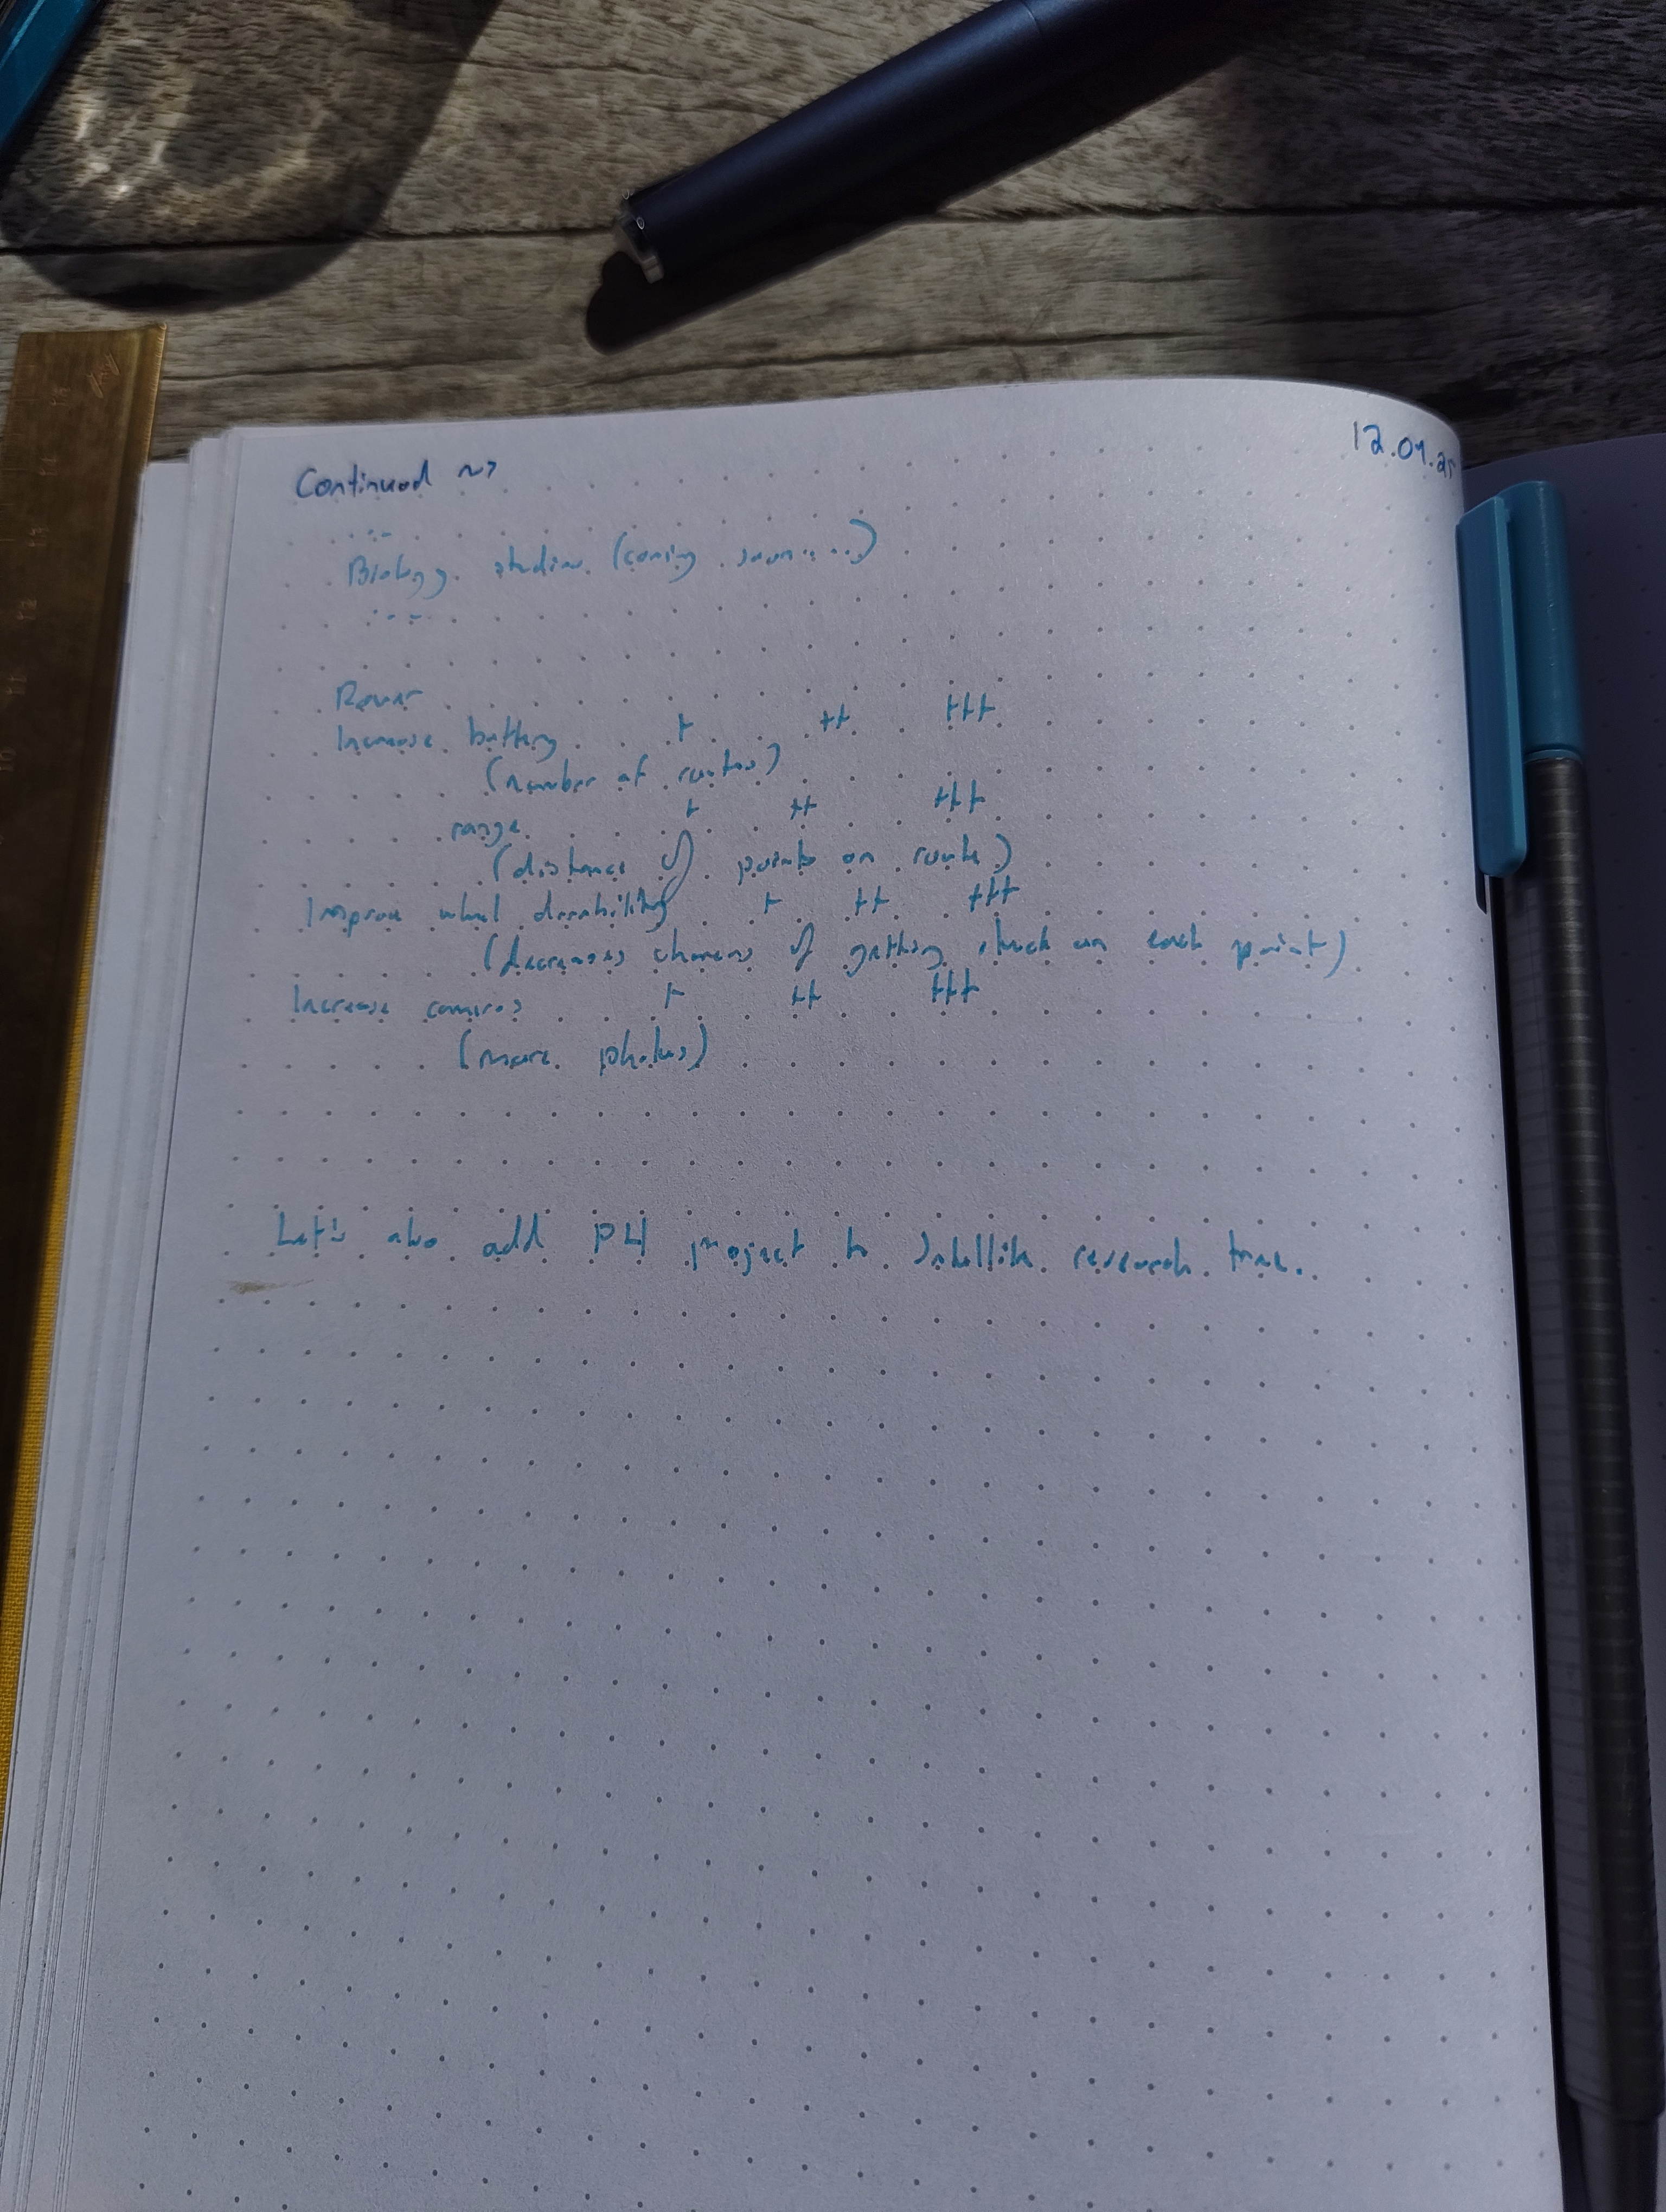 Continued ~>
12.09.25
Biology studies (coming soon.....)
Rover
Increase battery + ++ +++
(number of routes)
range + ++ +++
(distance of points on route)
Improve wheel durability + ++ +++
(decreases chances of getting stuck on each point)
Increase cameras + ++ +++
(more photos)
Let's also add P4 project to Satellite research tree.